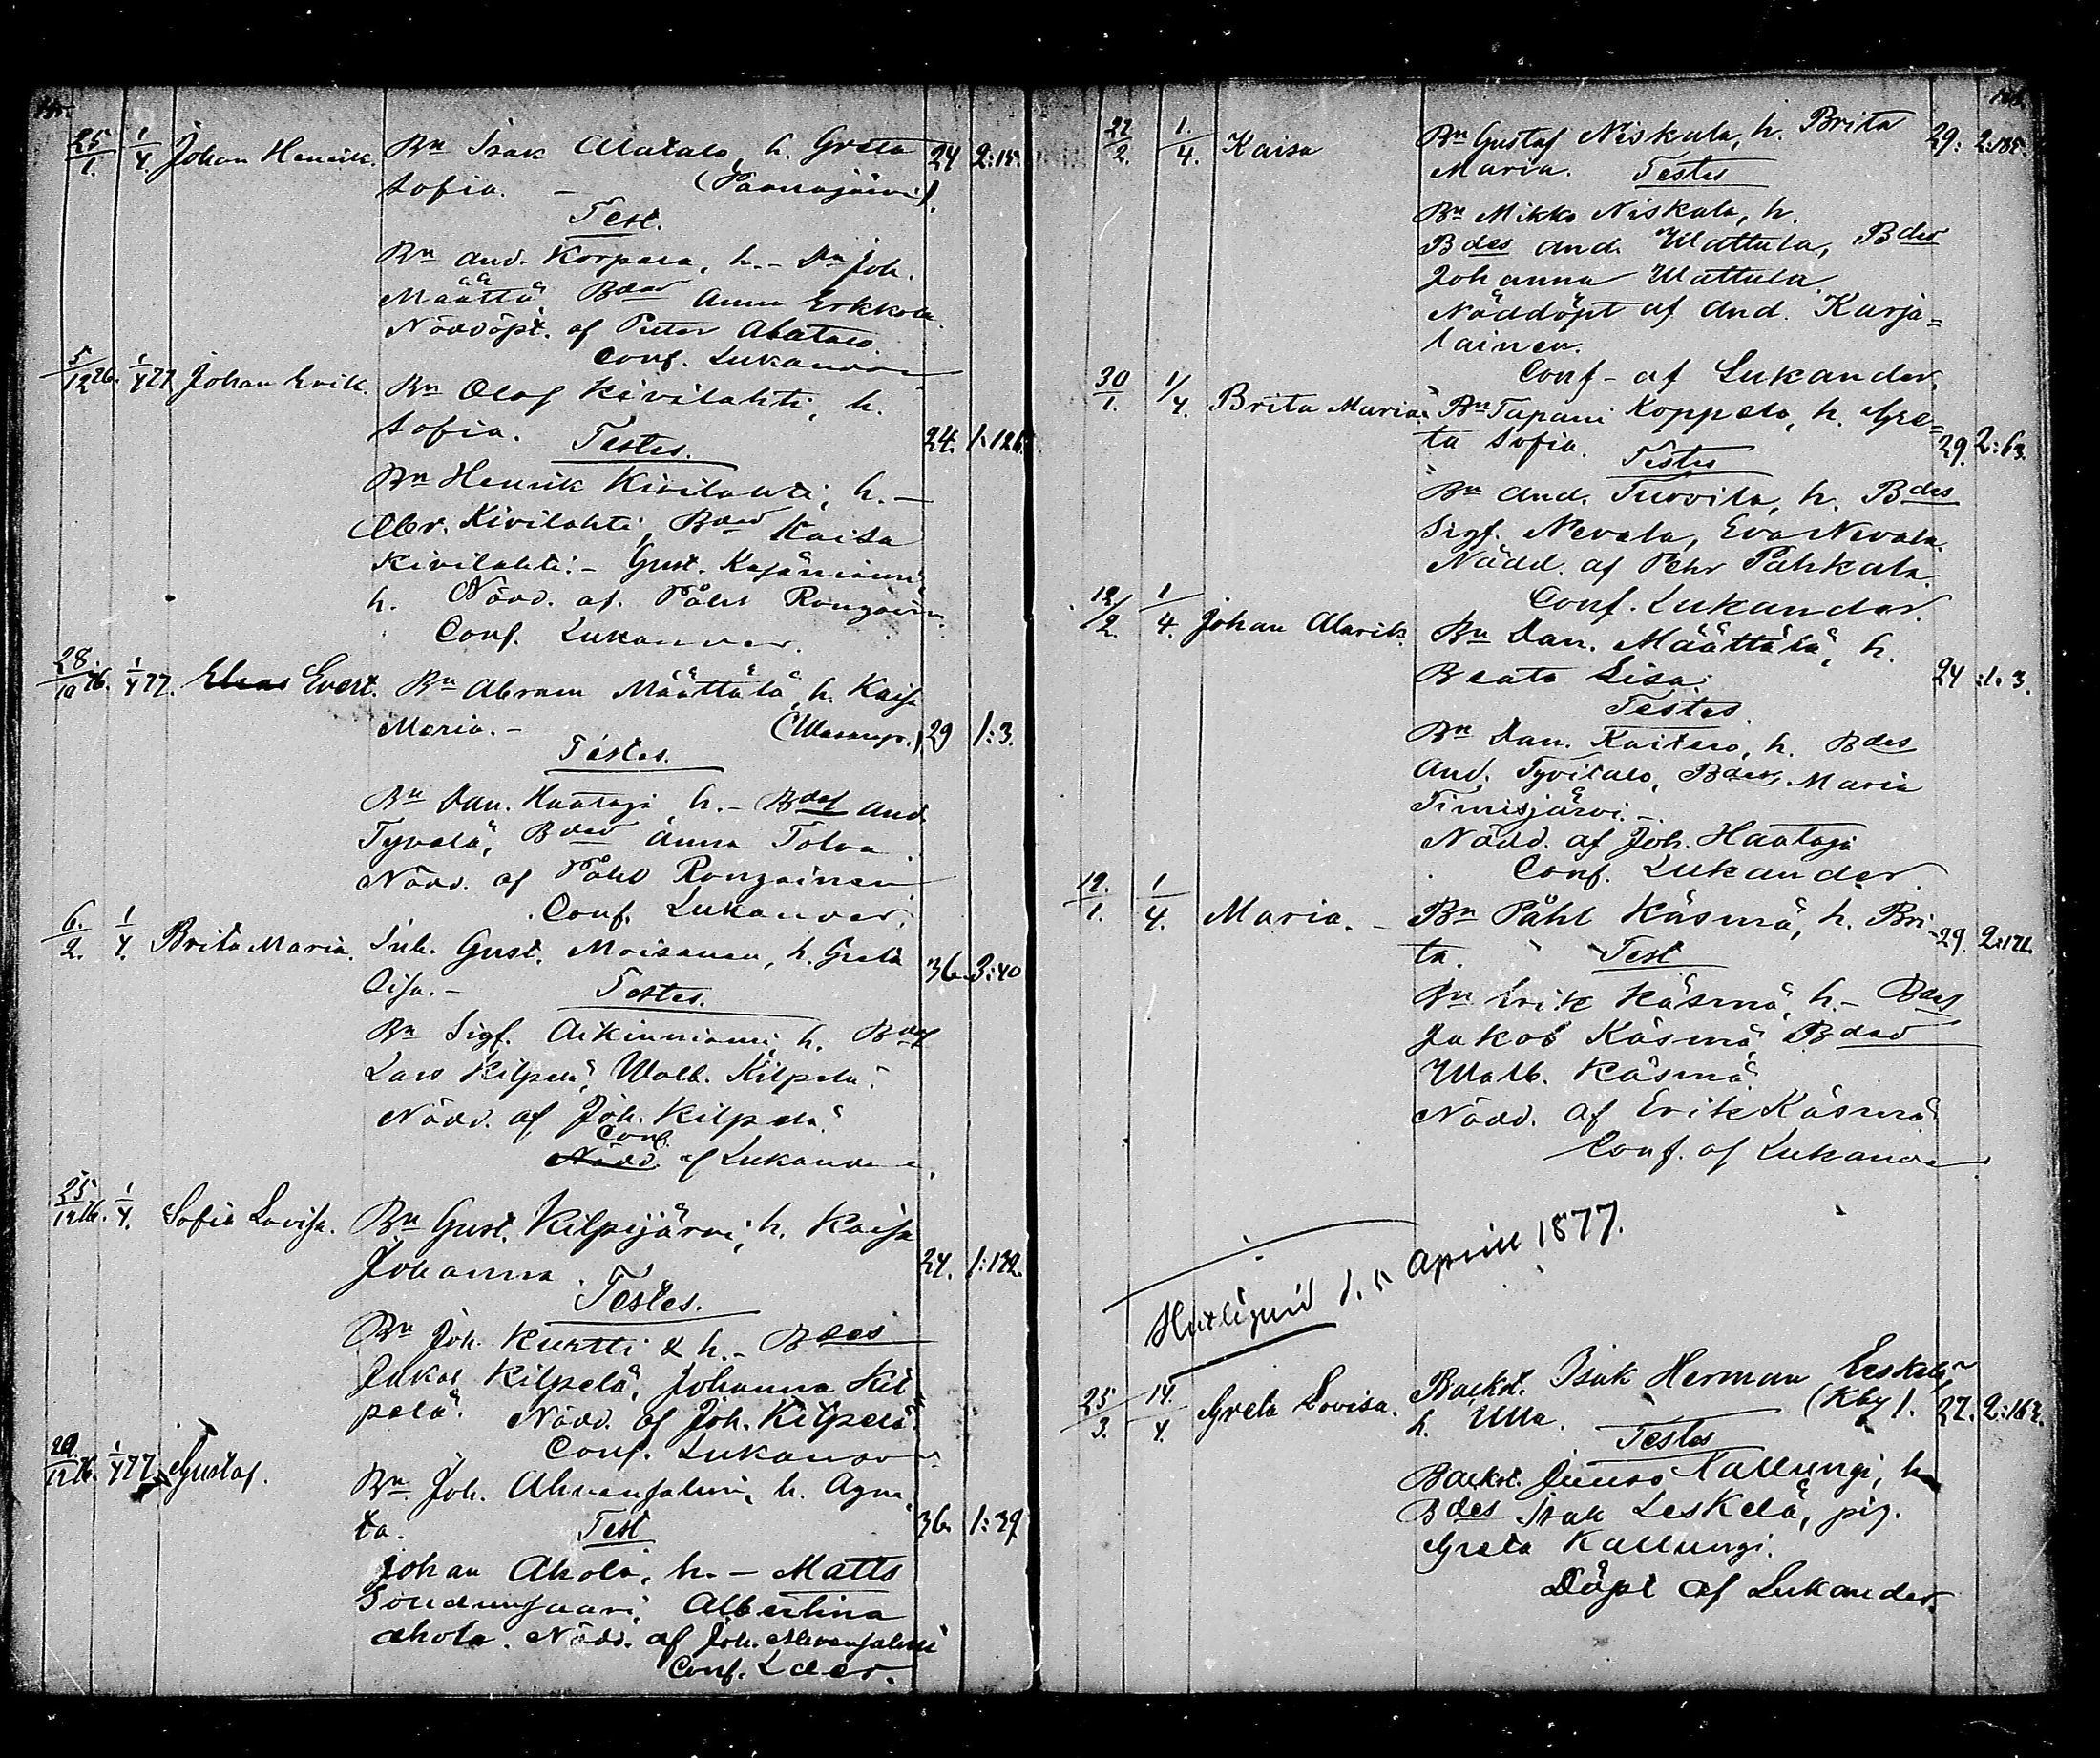 25/1. 1/4. Johan Henrik. Bn Isak Alatalo, h. Greta 24 2:15.
Sofia. – (Paanajärvi).
Test.
Bn And. Korpela, h. – Dn Joh.
Määttä Bdar Anna Erkkola.
Nöddöpt. af Petter Alatalo.
Conf. Lukander
5/12 76. 1/4 77 Johan Erik. Bn Olof Kivilahti, h.
Sofia. Testes. 24. 1:126.
Bn Henrik Kivilahti, h. –
Abr. Kivilahti, Bdar Kaisa
Kivilahti. – Gust. Kajäniemi
h. Nödd. af. Påhl Rongain.
Conf. Lukander.
28/10 76. 1/4 77. Elias Evert. Bn Abram Määttälä, h. Kaisa
Maria. – 29 1:3.
Testes.
Bn Dan. Haataja, h. – Bdes And.
Tyvelä, Bdar Anna Tolva.
Nödd. af Påhl Rongainen
Conf. Lukander.
6./2. 1/4. Brita Maria. Inh. Gust. Moisanen, h. Greta 36. 3:40
Lisa. – Testes.
Bn Sigf. Aikinniemi, h. Bdes
Lars Kilpelä, Walb. Kilpelä.
Nödd. af Joh. Kilpelä.
Conf.
Nödd. af Lukander.
25/12 76. 1/4. Sofia Lovisa. Bn Gust. Kilpijärvi, h. Kaisa
Johanna. 24. 1:122.
Testes.
Bn Joh. Kurtti & h. – Bdes
Jakob Kilpelä, Johanna Kil=
pelä. Nödd. af Joh. Kilpelä.
Conf. Lukander.
29./12 76. 1/4 77 Gustaf. Bn Joh. Ahvensalmi, h. Agne=
ta. Test 36. 1:39
Johan Ahola, h. – Matts
Albertina
Ahola. Nödd. af Joh. Ahvensalmi
Conf. Lder.
22/2. 1./4. Kaisa Bn Gustaf Niskala, h. Brita 29: 2:185.
Maria. Testes
Bn Mikko Niskala, h.
Bdes And. Wattula, Bdar
Johanna Wattula.
Nöddöpt af And. Karja=
lainen.
Conf – af Lukander.
30/1. 1/4. Brita Maria. Bn Tapani Koppelo, h. Gre=
ta Sofia. 29. 2:63.
Testes
Bn And. Turvila, h. Bdes
Sigf. Nevala, Eva Nevala.
Nödd. af Pehr Pahkala.
Conf. Lukander.
12/2. 1/4. Johan Alarik. Bn Dan. Määttälä, h.
Beata Lisa. 24 :1:3.
Testes.
Bn Dan. Kaitero, h. Bdes
And. Tyvitalo, Bdar Maria
Timisjärvi. –
Nödd. af Joh. Haataja
Conf. Lukander.
19./1. 1/4. Maria. – Bn Påhl Käsmä, h. Bri- 29. 2:171.
ta. Test
Bn Erik Käsmä, h. – Bdes
Jakob Käsmä Bdar
Walb. Käsmä.
Nödd. af Erik Käsmä.
Conf. af Lukander
April 1877.
25/3. 14./4. Greta Lovisa. Backst. Isak Herman Leskelä,
h. Ulla. (Kby). 27. 2:162.
Testes
Backst. Juuso Kallungi, h.
Bdes Isak Leskelä, pig.
Greta Kallungi.
Döpt af Lukander.